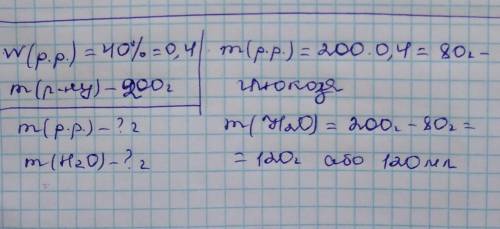 W(р.р.) = 40% = 0,4
m(р-ну) - 200г
m(р.р.) - ? г
m(H2O) - ? г
m(р.р.) = 200 · 0,4 = 80г -
глюкоза
m(H2O) = 200г - 80г =
= 120г або 120мл